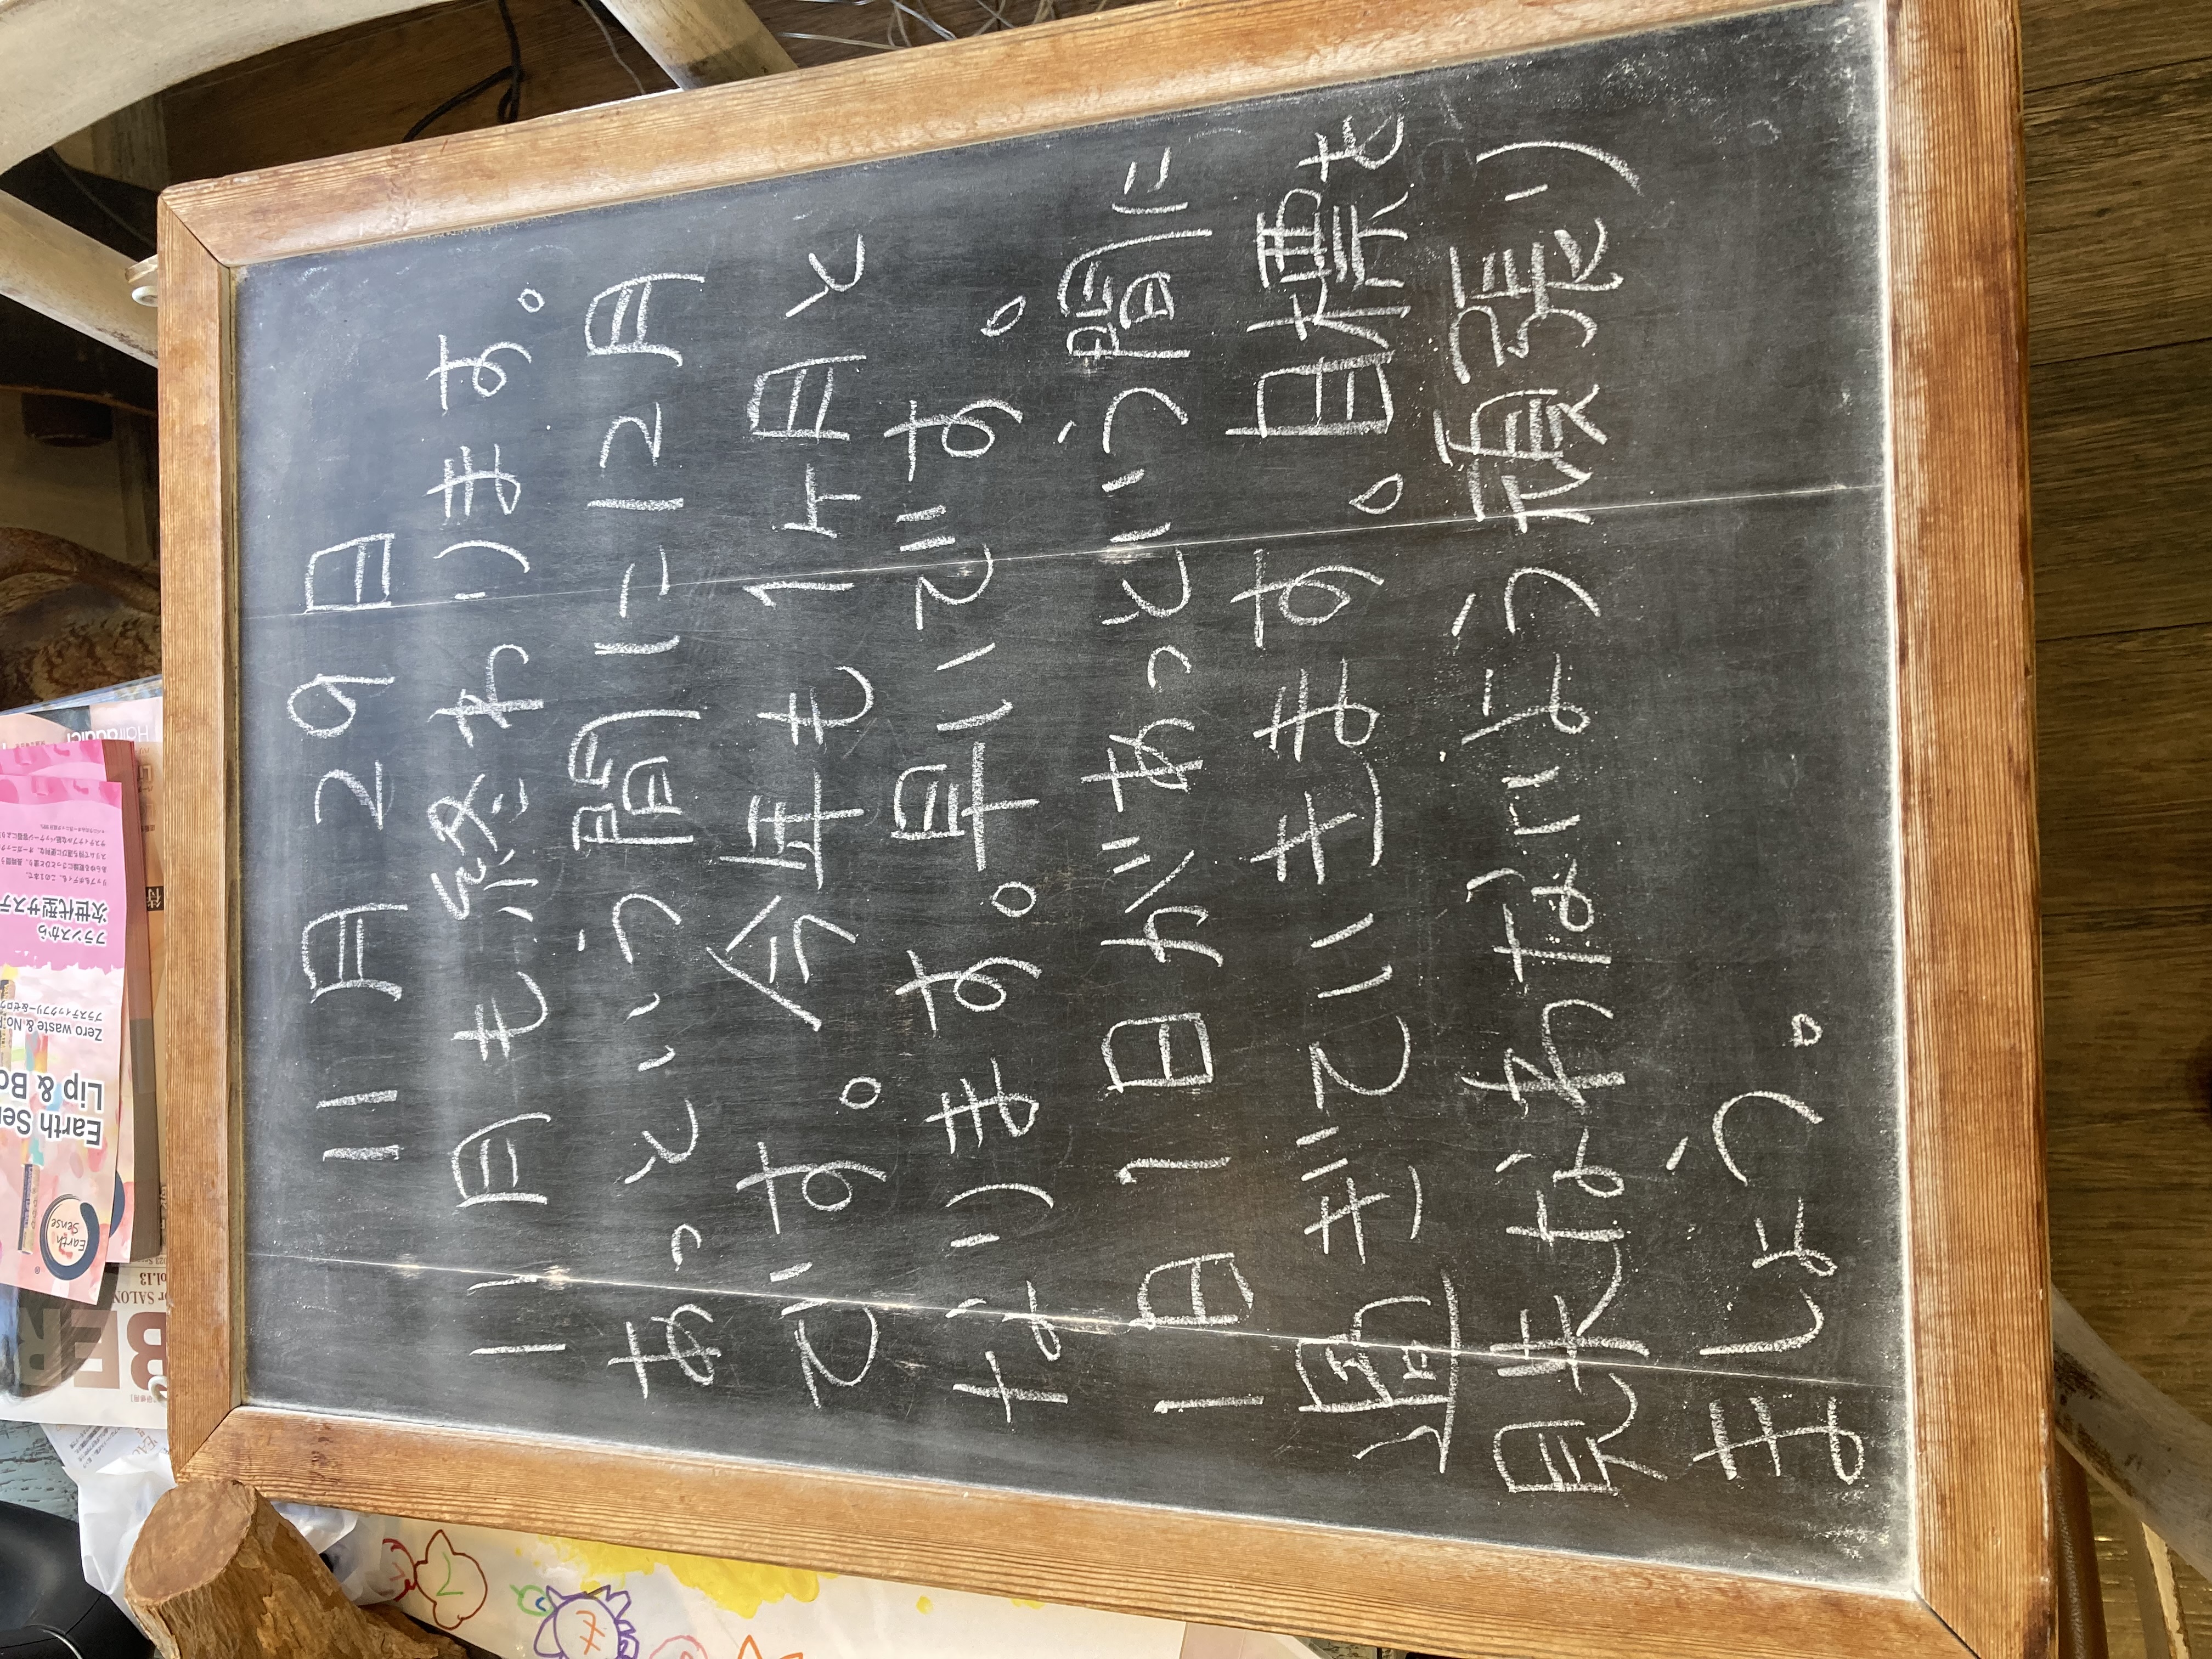 11月29日
11月も終わります。
あっという間に12月
です。今年も1ヶ月と
なります。早いです。
1日1日があっという間に
過ぎていきます。目標を
見失なわないよう頑張り
ましょう。
Earth Sense
Lip & Bo
Zero waste & No.
フランスから
次世代型サステ
リップもボディも、この1本で。
Earth
Sense
or SALON
ol.13
BER
Hairaddict